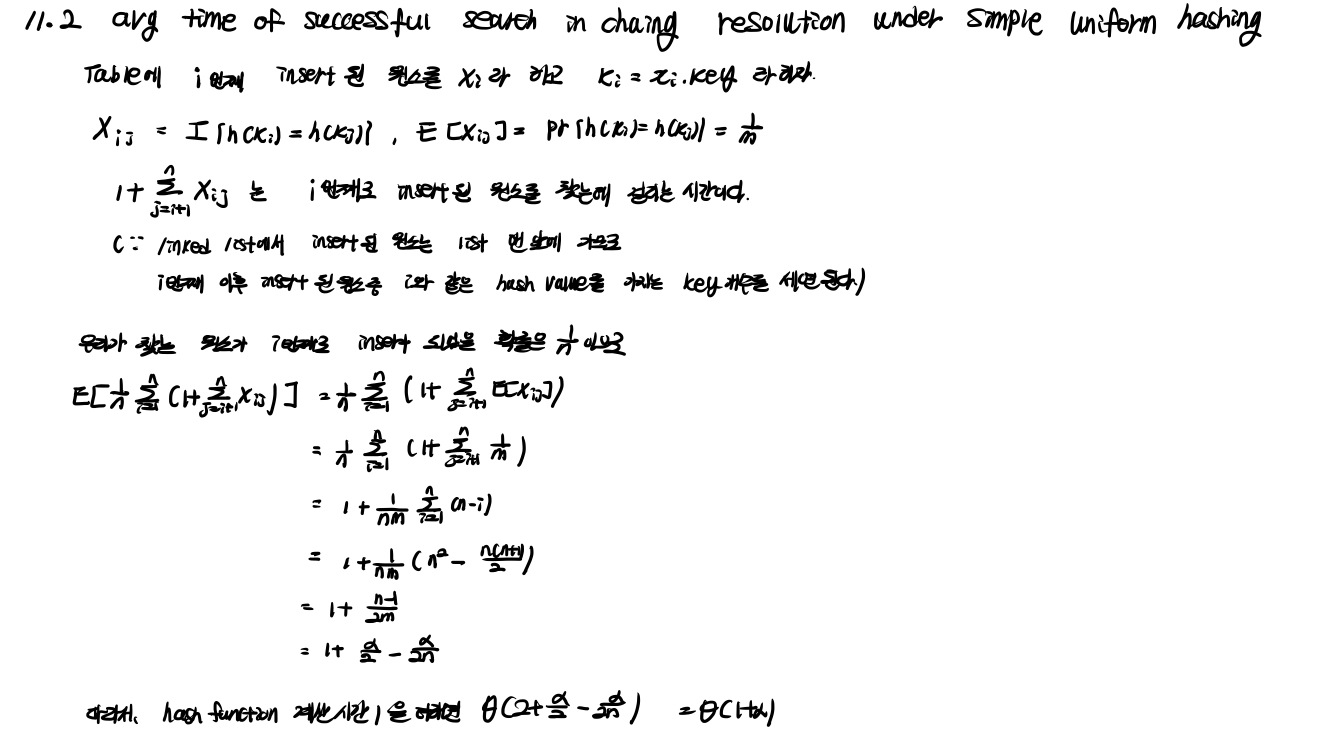 11.2 avg time of successful search in chaing resolution under simple uniform hashing
Table에 i번째 insert 된 원소를 xᵢ라 하고 kᵢ = xᵢ.key 라하자.
Xᵢⱼ = I{h(kᵢ) = h(kⱼ)}, E[Xᵢⱼ] = pr{h(kᵢ)=h(kⱼ)} = 1/m
1 + Σ_{j=i+1}^{n} Xᵢⱼ 는 i번째로 insert 된 원소를 찾는데 걸리는 시간이다.
(∵ linked list에서 insert 된 원소는 list 맨 앞에 가므로
i번째 이후 insert 된 원소중 i와 같은 hash value를 가지는 key 개수를 세면 된다.)
우리가 찾는 원소가 i번째로 insert 되었을 확률은 1/n 이므로
E[1/n Σ_{i=1}^{n} (1+Σ_{j=i+1}^{n} Xᵢⱼ)] = 1/n Σ_{i=1}^{n} (1+ Σ_{j=i+1}^{n} E[Xᵢⱼ])
= 1/n Σ_{i=1}^{n} (1+ Σ_{j=i+1}^{n} 1/m)
= 1 + 1/nm Σ_{i=1}^{n} (n-i)
= 1 + 1/nm (n² - n(n+1)/2)
= 1 + n-1/2m
= 1 + α/2 - α/2n
따라서, hash function 계산시간 1을 더하면 θ(2+α/2 - α/2n) = θ(1+α)